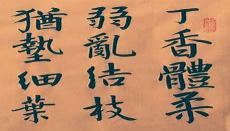 丁香體柔
弱亂結枝
猶墊細葉